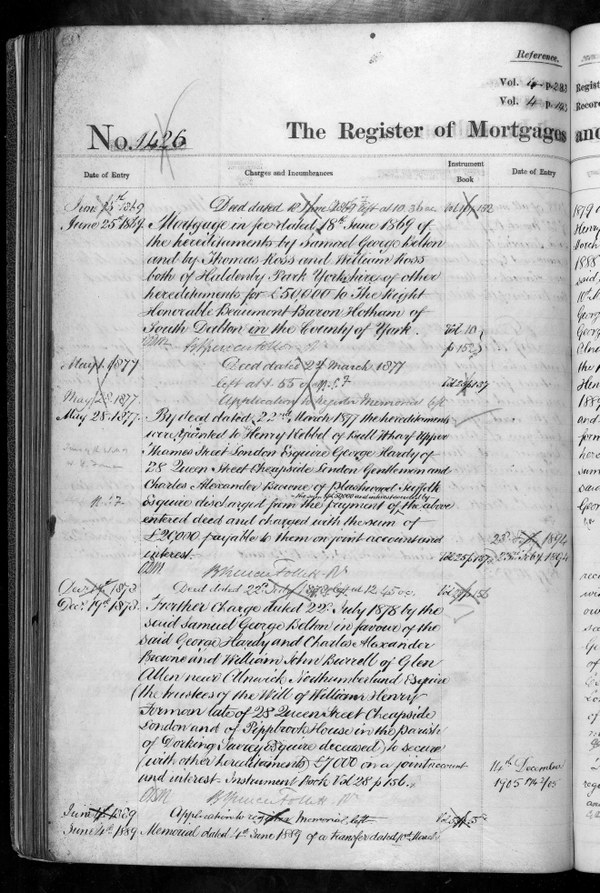 Reference.
Vol. 4 p. 283
Vol. 4 p. 143
No. 1426
The Register of Mortgages and
Date of Entry
Charges and Incumbrances
Instrument Book
Date of Entry
June 25th 1869
Deed dated 18 June 1869 left at 10.36
Vol 10 p 152
June 25th 1869.
Mortgage in fee dated 18th June 1869 of
the hereditaments by Samuel George Belton
and by Thomas Ross and William Ross
both of Haldenby Park Yorkshire of other
hereditaments for £50,000 to The Right
Honorable Beaumont Baron Hotham of
South Dalton in the County of York.
Vol. 10
p 152
May 1877
Deed dated 22d March 1877
left at 1.55
Vol 28 p 157
May 28 1877
Application to register Memorial left
May 28. 1877.
By deed dated 22nd March 1877 the hereditaments
were granted to Henry Hebbel of Bull Wharf Upper
Thames Street London Esquire George Hardy of
28 Queen Street Cheapside London Gentleman and
Charles Alexander Browne of Suffolk
Esquire discharged from the payment of the above
entered deed and charged with the sum of
£20000 payable to them on joint account and
interest.
Vol. 28 p 157
23d Feby 1894
23rd Feby 1894
Dec 19th 1878
Deed dated 22d July 1878 left at 12.45
Vol 28 p 156
Decr 19th 1878.
Further Charge dated 22d July 1878 by the
said Samuel George Belton in favour of the
said George Hardy and Charles Alexander
Browne and William John Burrell of Glen
Allen near Alnwick Northumberland Esquire
(the trustees of the Will of William Henry
Forman late of 28 Queen Street Cheapside
London and of Pippbrook House in the parish
of Dorking Surrey Esquire deceased) to secure
(with other hereditaments) £7000 on a joint account
and interest. Instrument Book Vol. 28 p 156.
14th December
1905
June 4 1889
Application to register Memorial left
June 4th 1889
Memorial dated 4th June 1889 of a transfer dated 10th March